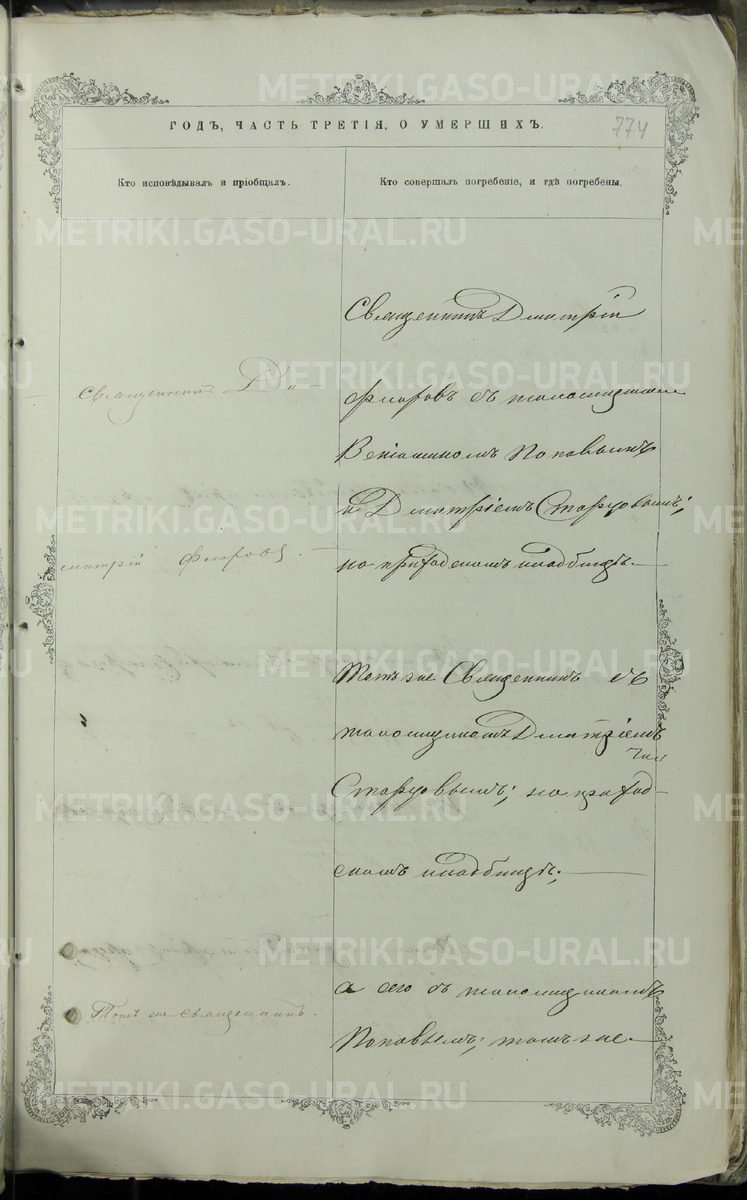 ГОДЪ, ЧАСТЬ ТРЕТІЯ, О УМЕРШИХЪ.
774
Кто исповѣдывалъ и пріобщалъ.
Кто совершалъ погребеніе, и гдѣ погребены.
Священникъ Дмитрій
Священникъ Ди-
Флоровъ съ
Веніаминомъ Поповымъ
и Дмитріемъ Старцовымъ;
митрій Флоровъ.
на приходскомъ кладбищѣ.
Тотъ же Священникъ съ
Дмитріемъ
Старцовымъ; на приход-
скомъ кладбищѣ;
а сего съ
Тотъ же священникъ.
Поповымъ; тамъ же.
METRIKI.GASO-URAL.RU